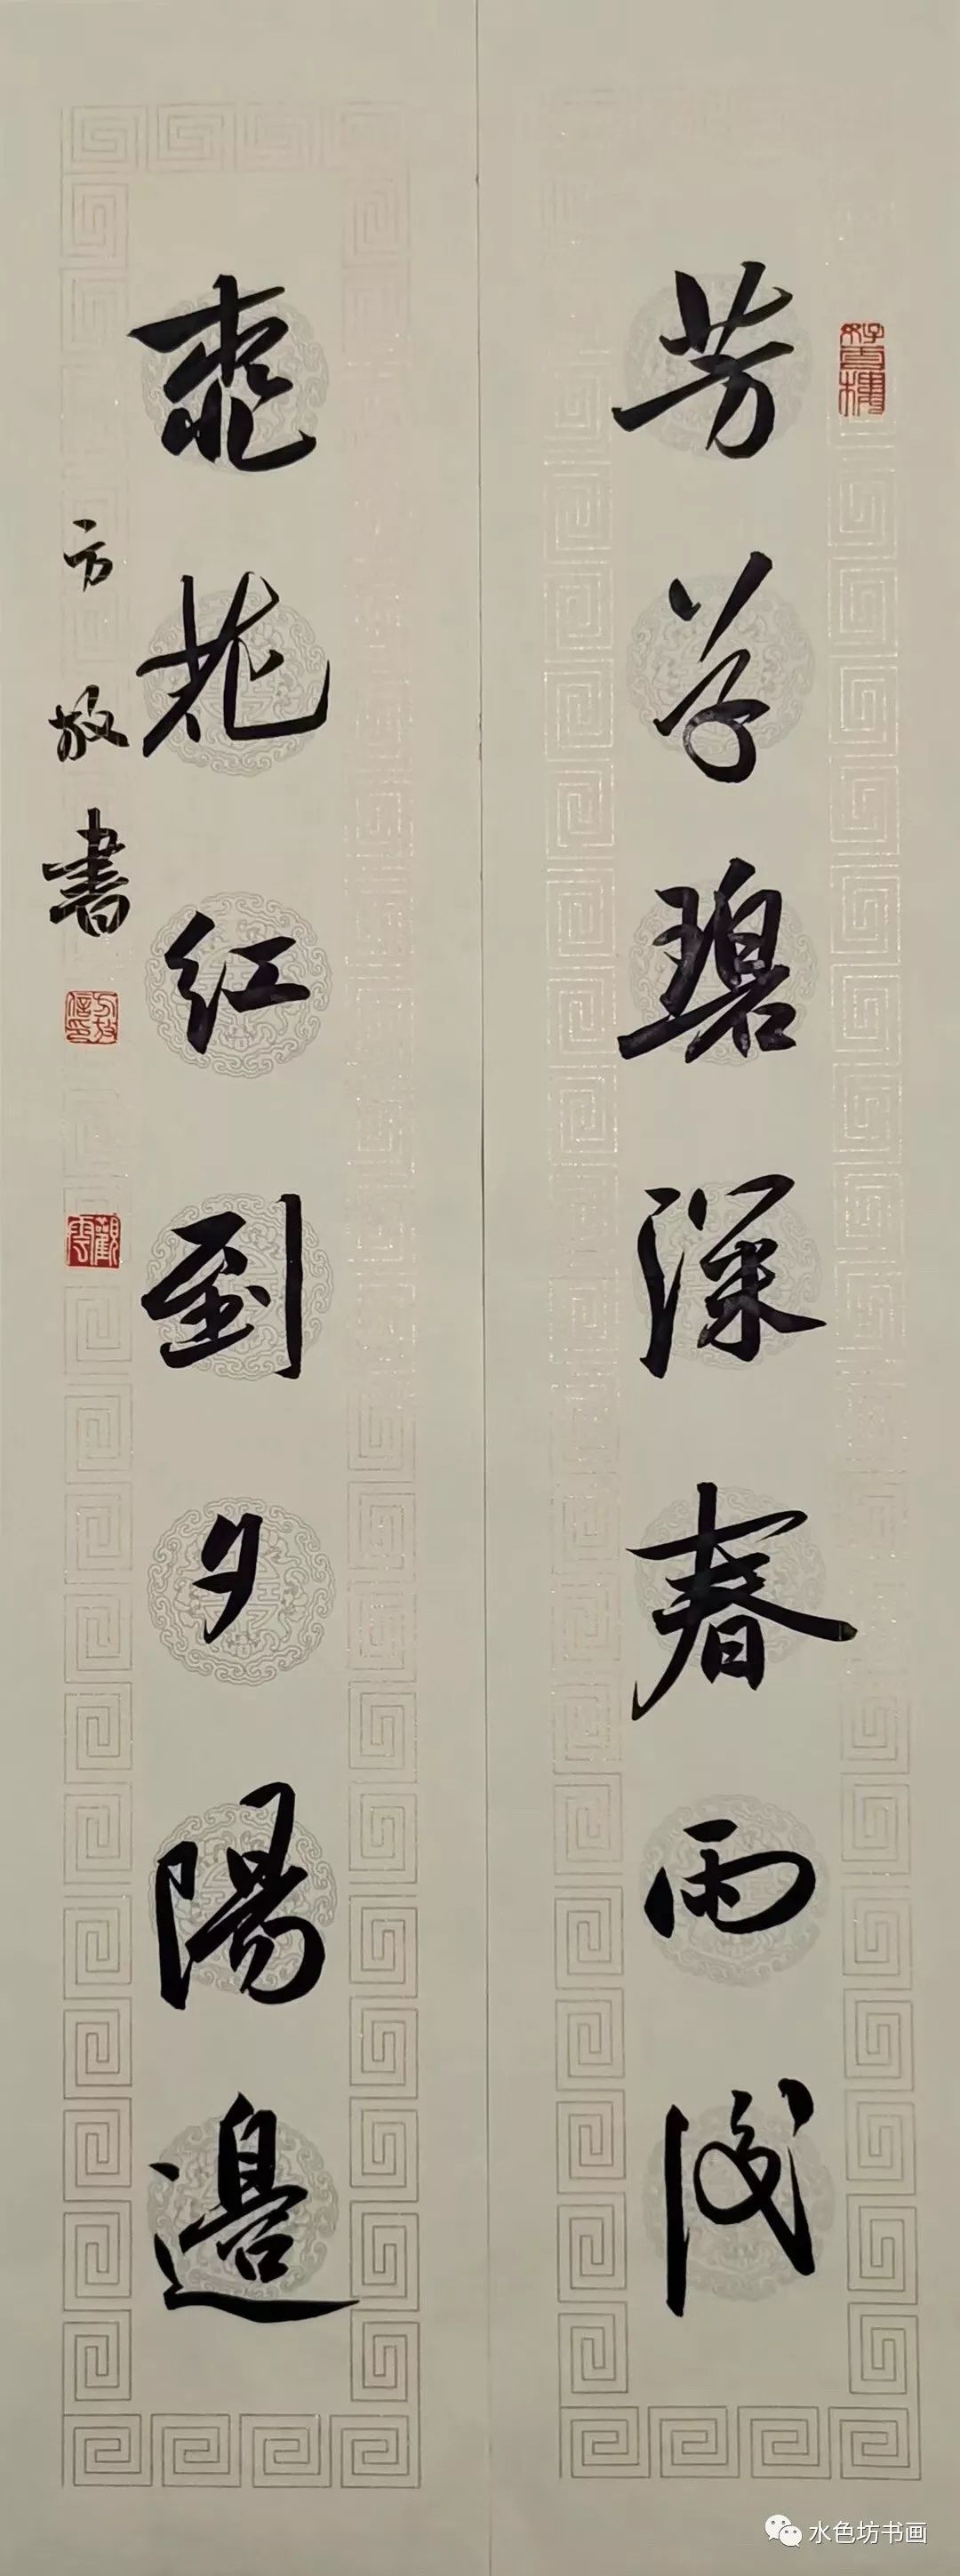 芳草碧深春雨後
桃花红到夕陽邊
方放書
水色坊书画